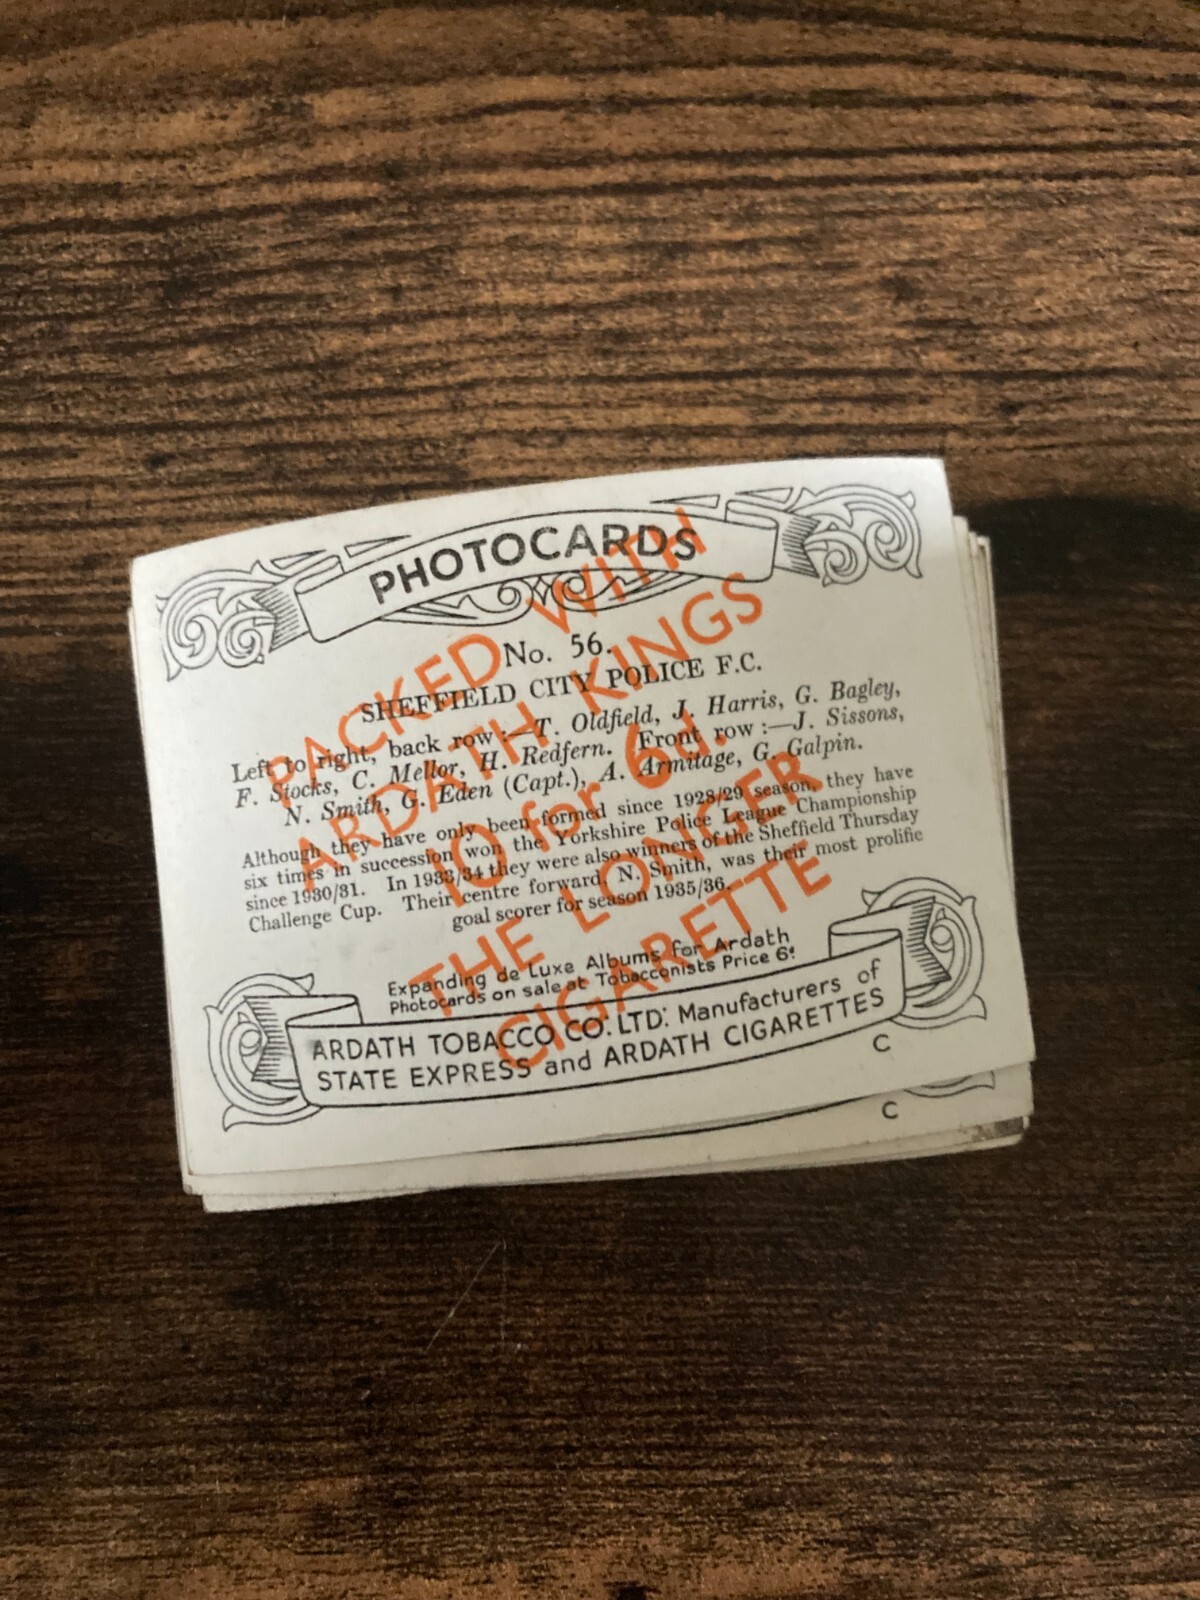 PHOTOCARDS
No. 56.
SHEFFIELD CITY POLICE F.C.
Left to right, back row :—T. Oldfield, J. Harris, G. Bagley,
F. Stocks, C. Mellor, H. Redfern. Front row :—J. Sissons,
N. Smith, G. Eden (Capt.), A. Armitage, G. Galpin.
Although they have only been formed since 1928/29 season, they have
six times in succession won the Yorkshire Police League Championship
since 1930/31. In 1933/34 they were also winners of the Sheffield Thursday
Challenge Cup. Their centre forward, N. Smith, was their most prolific
goal scorer for season 1935/36.
Expanding de Luxe Albums for Ardath
Photocards on sale at Tobacconists Price 6d.
ARDATH TOBACCO CO. LTD. Manufacturers of
STATE EXPRESS and ARDATH CIGARETTES
C
PACKED WITH
ARDATH KINGS
10 for 6d.
THE LONGER
CIGARETTE
C